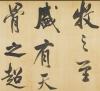 牧之至
盛有天
骨之超